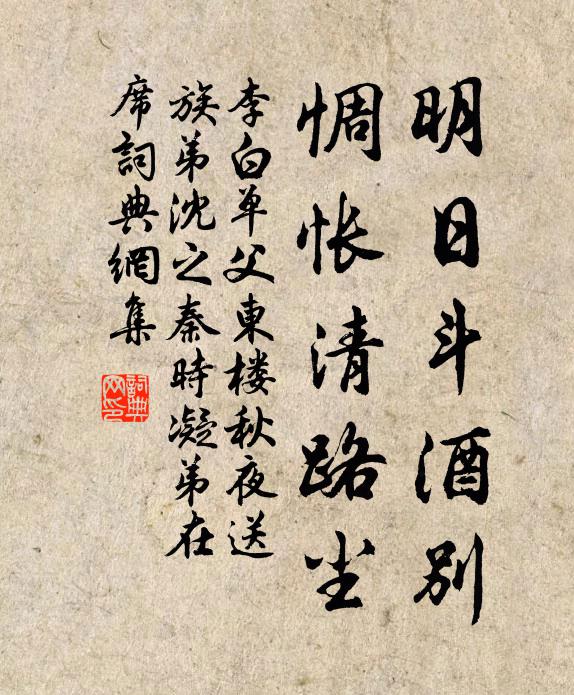 明日斗酒别
惆怅清路尘
李白单父東楼秋夜送
族弟沈之秦時凝弟在
席詞典網集
詞典
网印